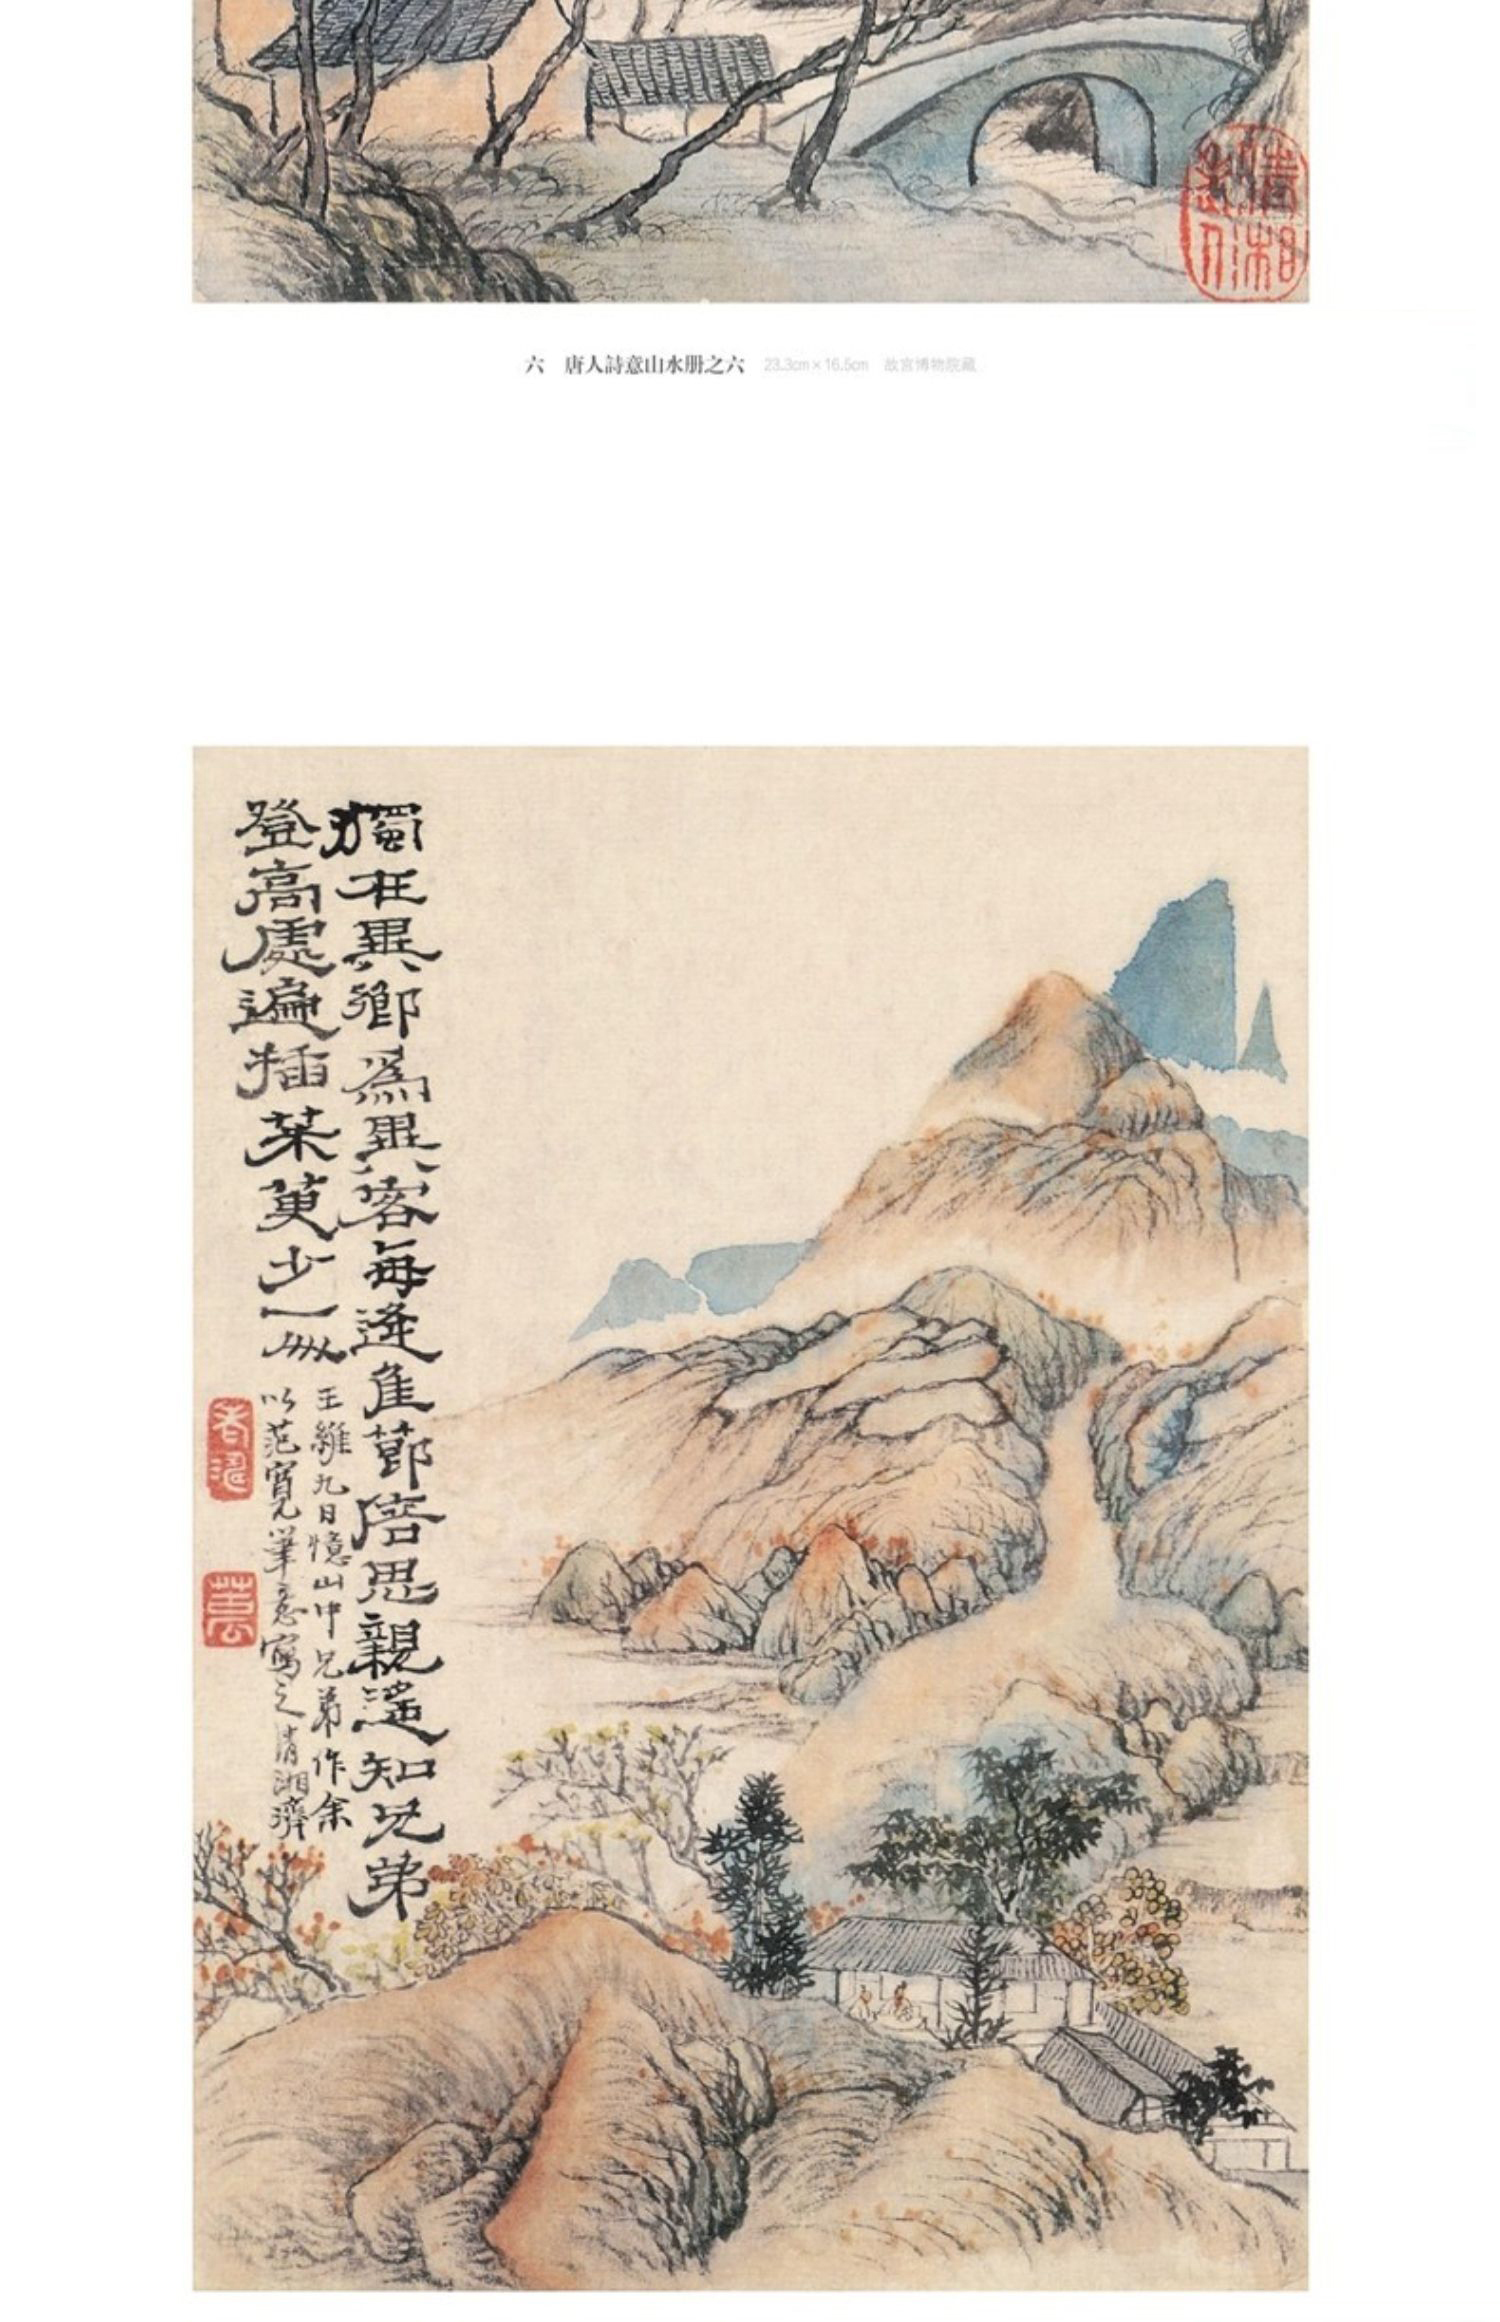 六 唐人詩意山水册之六 23.3cm×16.5cm 故宮博物院藏
獨在異鄉爲異客每逢佳節倍思親遙知兄弟
登高處遍插茱萸少一人
王維九日憶山中兄弟作余
以范寬筆意寫之清湘濟